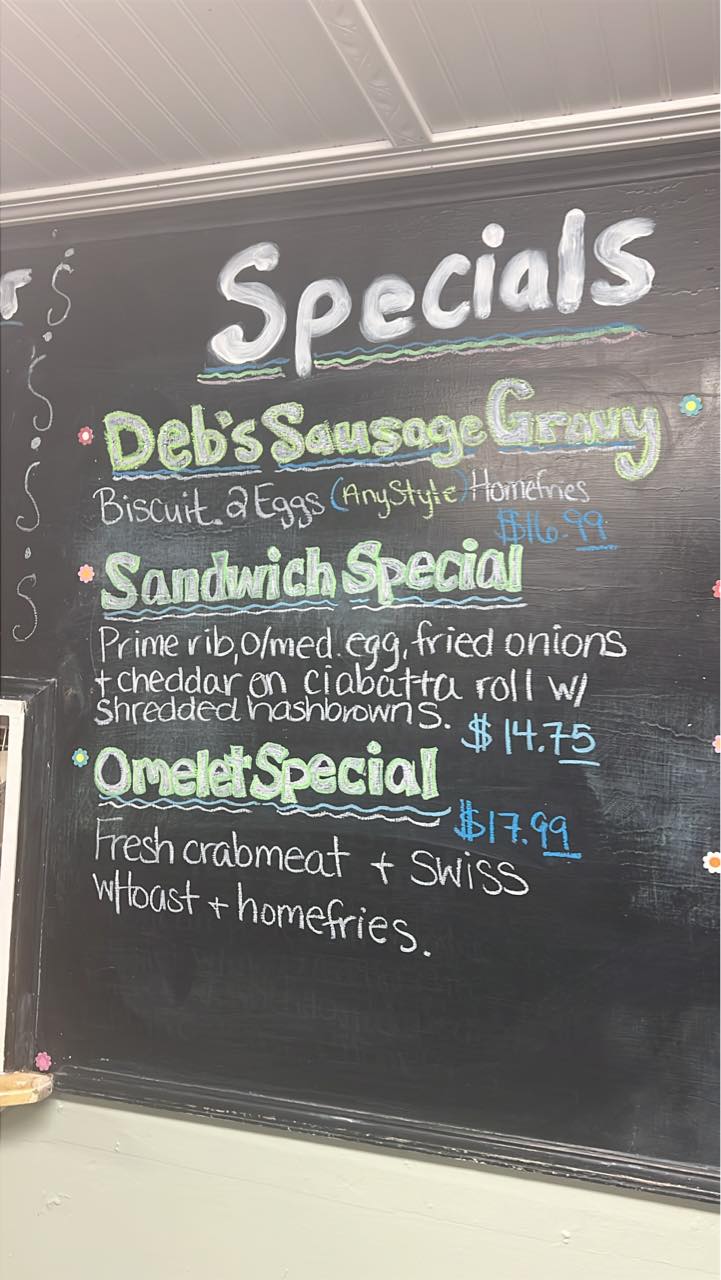 Specials
Deb's Sausage Gravy
Biscuit. 2 Eggs (Any Style) Homefries
$16.99
Sandwich Special
Prime rib, o/med. egg, fried onions
+ cheddar on ciabatta roll w/
shredded hashbrowns.
$14.75
Omelet Special
$17.99
Fresh crabmeat + swiss
w/toast + homefries.